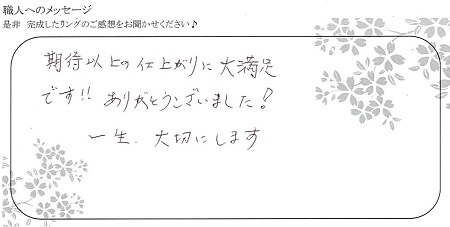 職人へのメッセージ
是非 完成したリングのご感想をお聞かせください♪
期待以上の仕上がりに大満足
です!! ありがとうございました!
一生、大切にします